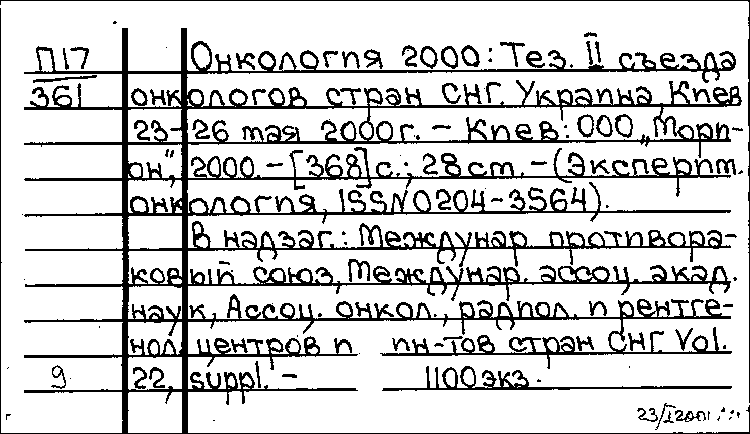 П17 Онкология 2000: Тез. II съезда
361 онкологов стран СНГ. Украина, Киев
23-26 мая 2000г. - Киев: ООО „Мори-
он", 2000. - [368]с.; 28 cm. - (Эксперим.
онкология, ISSN 0204-3564).
В надзаг.: Междунар. противора-
ковый союз, Междунар. ассоц. акад.
наук, Ассоц. онкол., радиол. и рентге-
нол. центров и ин-тов стран СНГ. Vol.
9 22, suppl. - 1100 экз.
23/I2001